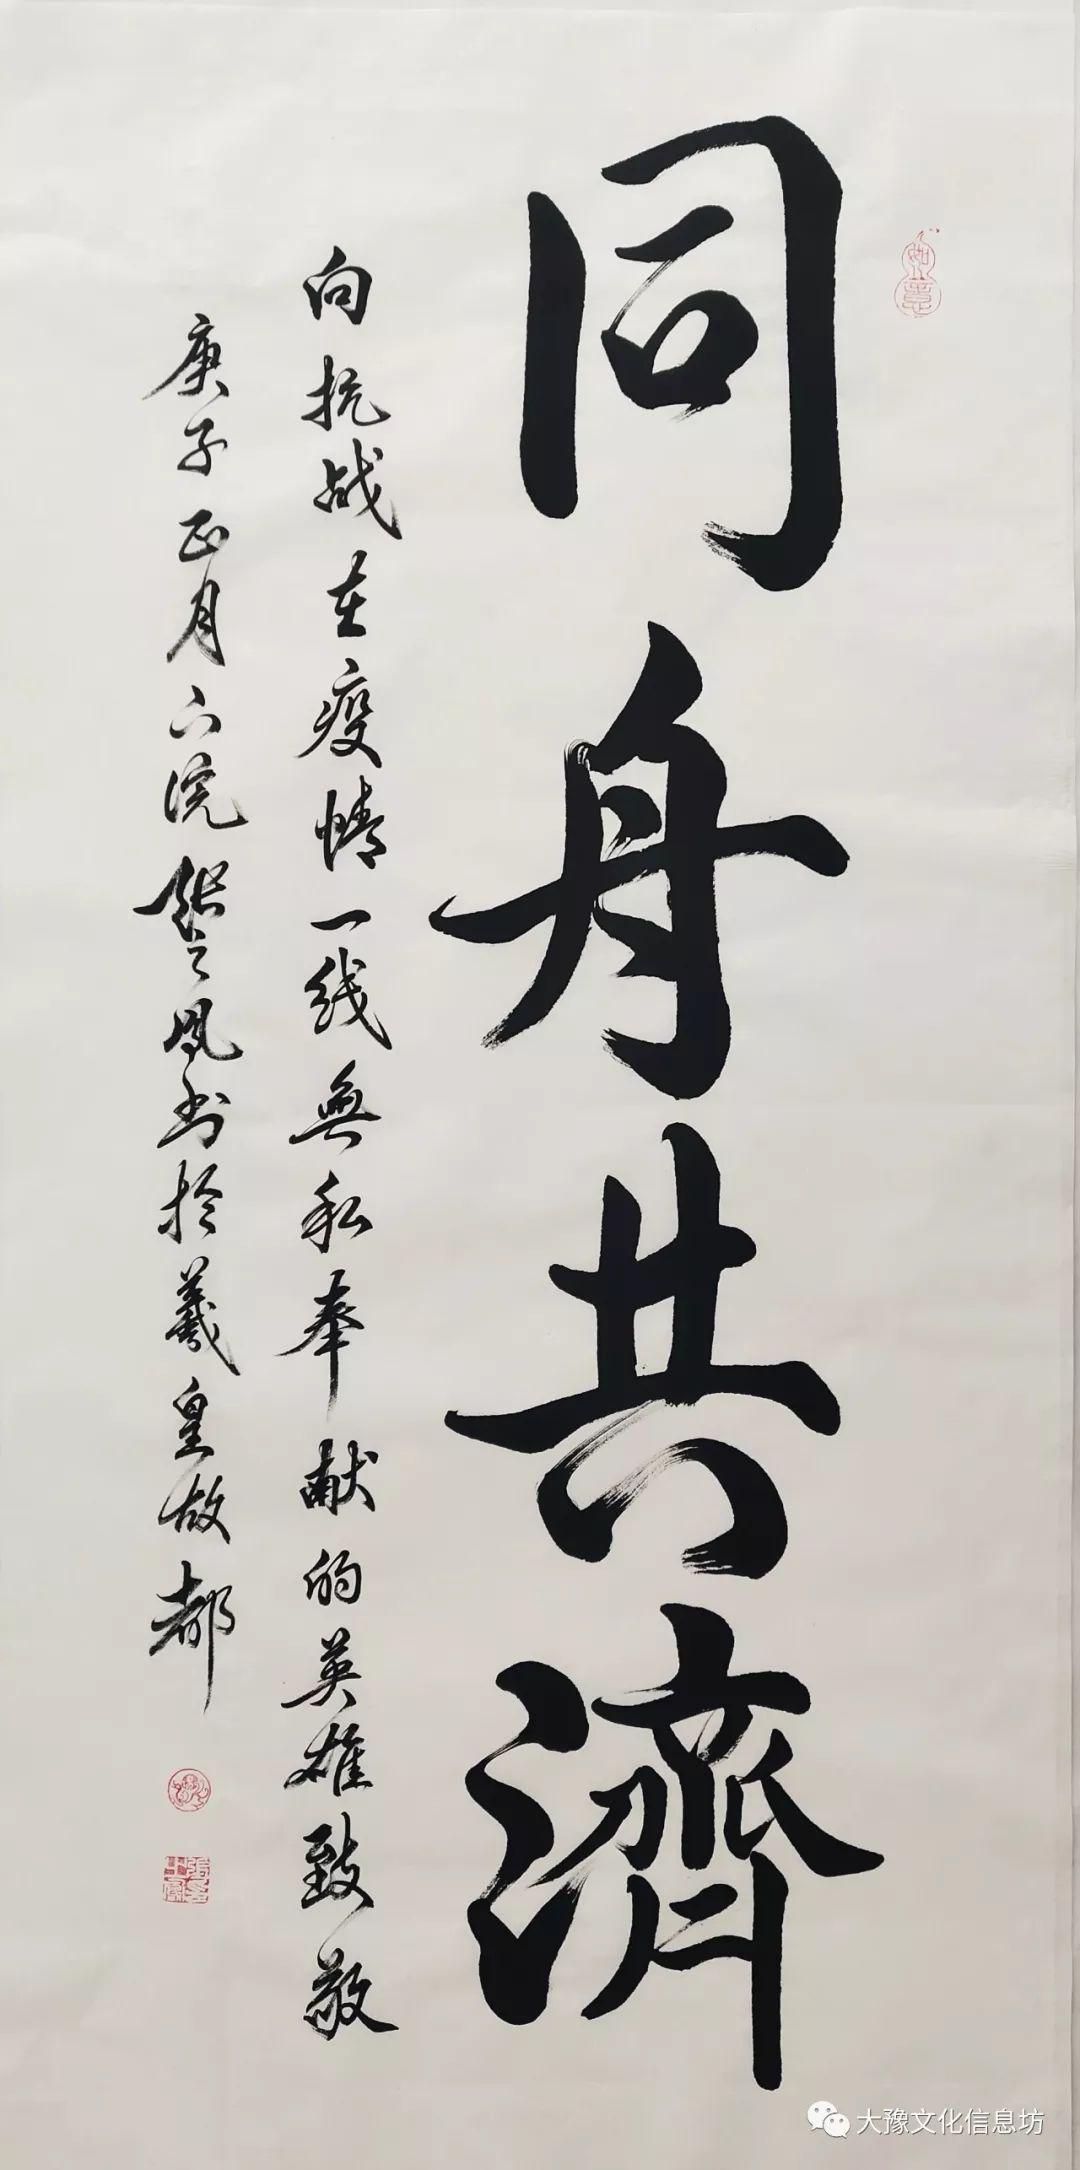 如意
同舟共濟
向抗战在疫情一线無私奉献的英雄致敬
庚子正月下浣张之凤书於羲皇故都
大豫文化信息坊